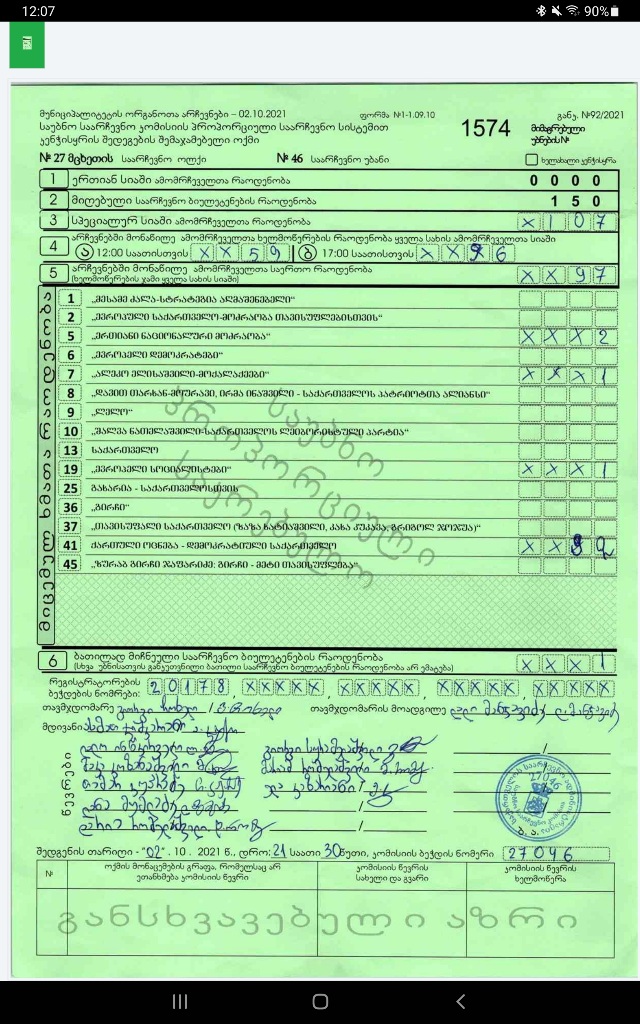 12:07 90%
მუნიციპალიტეტის ორგანოთა არჩევნები – 02.10.2021 ფორმა №1-1.09.10 1574 განკ. №92/2021
საუბნო საარჩევნო კომისიის პროპორციული საარჩევნო სისტემით
კენჭისყრის შედეგების შემაჯამებელი ოქმი მიმაგრებული უბნების №
№ 27 მცხეთის საარჩევნო ოლქი № 46 საარჩევნო უბანი ხელახალი კენჭისყრა
1 ერთიან სიაში ამომრჩეველთა რაოდენობა 0 0 0 0
2 მიღებული საარჩევნო ბიულეტენების რაოდენობა 1 5 0
3 სპეციალურ სიაში ამომრჩეველთა რაოდენობა X 1 0 7
4 არჩევნებში მონაწილე ამომრჩეველთა ხელმოწერების რაოდენობა ყველა სახის ამომრჩეველთა სიაში
ა 12:00 საათისთვის X X 5 9 ბ 17:00 საათისთვის X X 9 6
5 არჩევნებში მონაწილე ამომრჩეველთა საერთო რაოდენობა
(ხელმოწერების ჯამი ყველა სახის სიაში) X X 9 7
1 „მესამე ძალა-სტრატეგია აღმაშენებელი“
2 „ევროპული საქართველო-მოძრაობა თავისუფლებისთვის“
5 „ერთიანი ნაციონალური მოძრაობა“ X X X 2
6 „ევროპელი დემოკრატები“
7 „ალეკო ელისაშვილი-მოქალაქეები“ X X X 1
8 „დავით თარხან-მოურავი, ირმა ინაშვილი - საქართველოს პატრიოტთა ალიანსი“
9 „ლელო“
10 „შალვა ნათელაშვილი-საქართველოს ლეიბორისტული პარტია“
13 საქართველო
19 „ევროპელი სოციალისტები“ X X X 1
25 გახარია - საქართველოსთვის
36 „გირჩი“
37 „თავისუფალი საქართველო (ზაზა ხატიაშვილი, კახა კუკავა, გრიგოლ ჯოჯუა)“
41 ქართული ოცნება - დემოკრატიული საქართველო X X 9 2
45 „ზურაბ გირჩი ჯაფარიძე: გირჩი - მეტი თავისუფლება“
საუბნო
პროპორციული
საარჩევნო
6 ბათილად მიჩნეული საარჩევნო ბიულეტენების რაოდენობა
(სხვა უბნისათვის განკუთვნილი ბათილი საარჩევნო ბიულეტენების რაოდენობა არ ემატება) X X X 1
რეგისტრატორების
ბეჭდების ნომრები: 2 0 1 7 8 , X X X X X , X X X X X , X X X X X , X X X X X
თავმჯდომარე თავმჯდომარის მოადგილე
მდივანი
წევრები
27046
ბ. ა.
შედგენის თარიღი - "02" . 10 . 2021 წ., დრო: 21 საათი 30 წუთი, კომისიის ბეჭდის ნომერი 2 7 0 4 6
№ ოქმის მონაცემების გრაფა, რომელსაც არ ეთანხმება კომისიის წევრი კომისიის წევრის სახელი და გვარი კომისიის წევრის ხელმოწერა
განსხვავებული აზრი